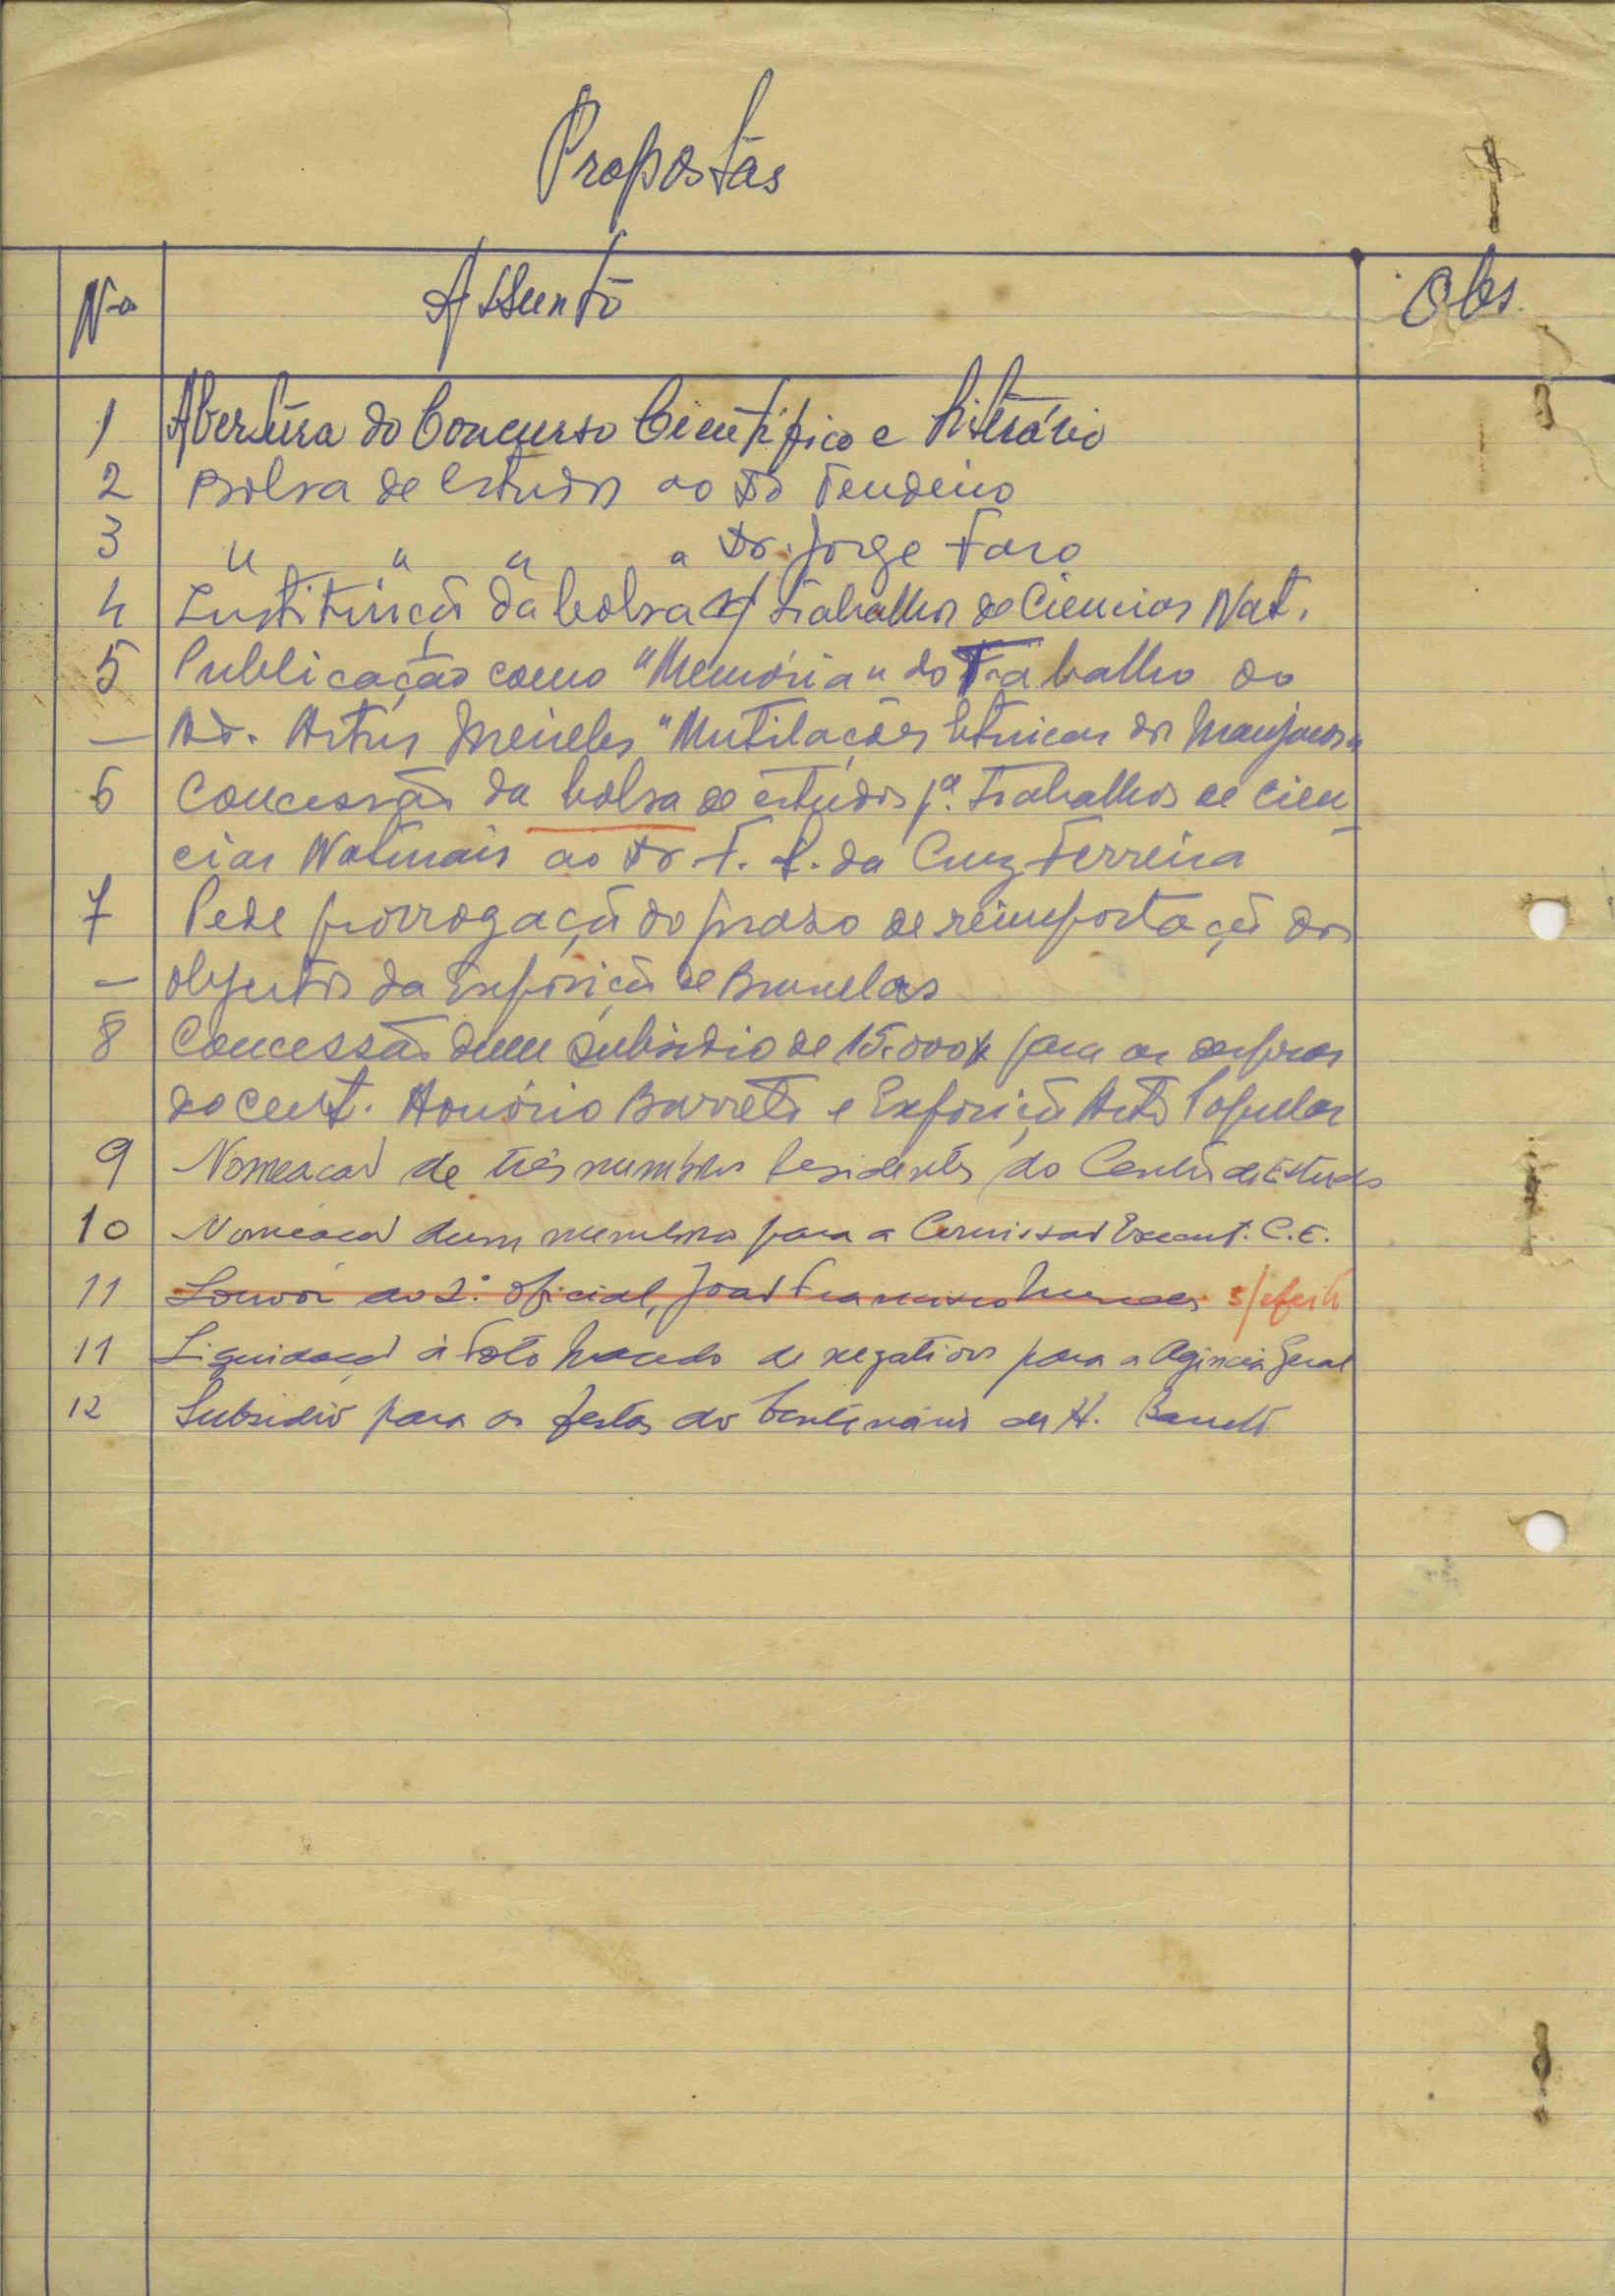 Propostas
Nº Assunto Obs.
1 Abertura do Concurso Científico e Literário
2 Bolsa de estudos ao Dr Tendeiro
3 " " " a Dr. Jorge Faro
4 Instituição da bolsa p/ trabalhos de Ciencias Nat.
5 Publicação como "Memória" do Trabalho do
— Ad. Artur Meireles "Mutilações étnicas dos Manjacos"
6 Concessão da bolsa de estudos pª. trabalhos de Cien
cias Naturais ao Dr. F. S. da Cruz Ferreira
7 Pede prorrogação do prazo de reimportação dos
— objectos da Exposição de Bruxelas
8 Concessão dum subsidio de 15.000$ para as despesas
do cent. Honório Barreto e Exposição Arte Popular
9 Nomeação de três membros residentes do Centro de Estudos
10 Nomeação dum membro para a Comissão Execut. C.E.
11 Louvor ao 2.º oficial, João Francisco Mendes s/efeito
11 Liquidação à Foto Macedo de negativos para a Agência Geral
12 Subsidio para as festas do Centenário de H. Barreto